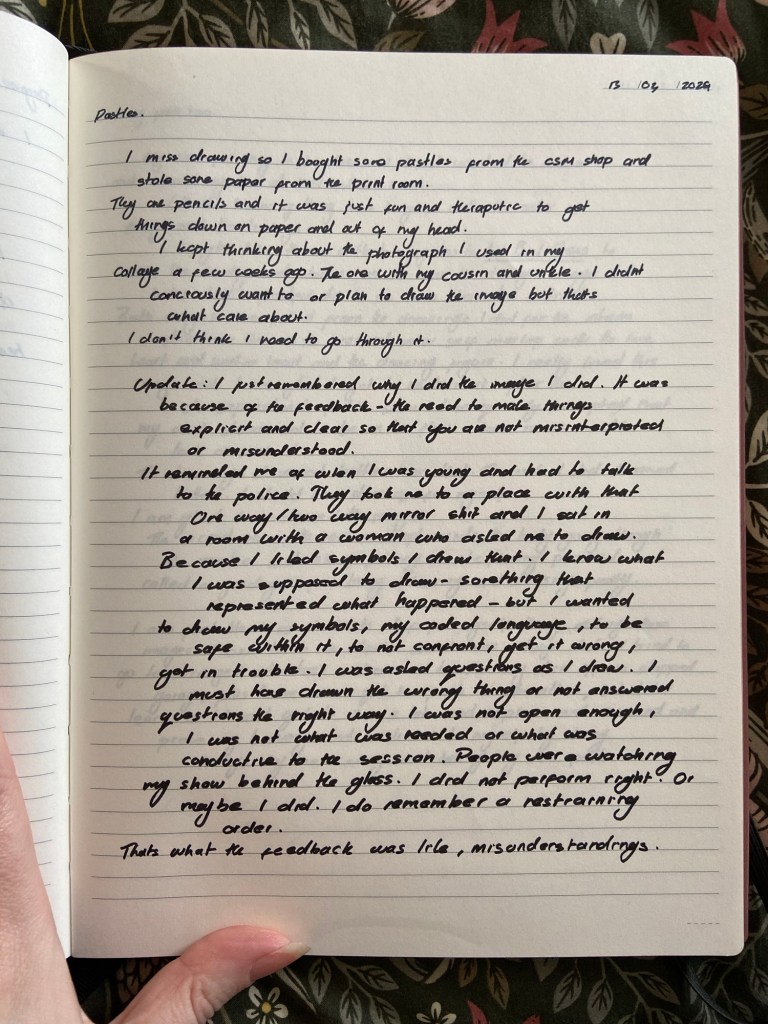 13 /04 /2024
Pastles.
I miss drawing so I bought some pastles from the csm shop and
stole some paper from the print room.
They are pencils and it was just fun and theraputic to get
things down on paper and out of my head.
I kept thinking about the photograph I used in my
collage a few weeks ago. The one with my cousin and unkle. I didnt
conciously want to or plan to draw the image but thats
what came about.
I don't think I need to go through it.
Update: I just remembered why I did the image I did. It was
because of the feedback - the need to make things
explicit and clear so that you are not misinterpreted
or misunderstood.
It reminded me of when I was young and had to talk
to the police. They took me to a place with that
One way/two way mirror shit and I sat in
a room with a woman who asked me to draw.
Because I liked symbols I drew that. I knew what
I was supposed to draw - something that
represented what happened - but I wanted
to draw my symbols, my coded language, to be
safe within it, to not confront, get it wrong,
get in trouble. I was asked questions as I drew. I
must have drawn the wrong thing or not answered
questions the right way. I was not open enough,
I was not what was needed or what was
conductive to the session. People were watching
my show behind the glass. I did not perform right. Or
maybe I did. I do remember a restraining
order.
Thats what the feedback was like, misunderstandings.